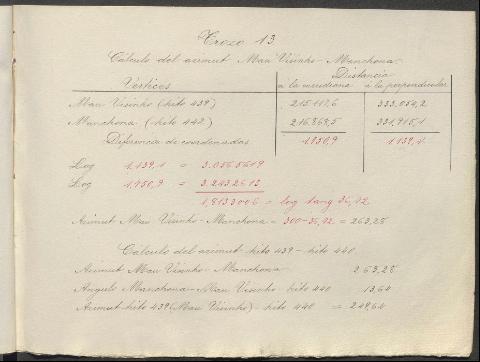 Trozo 13
Cálculo del azimut Mau Visinho-Manchona
Distancia
Vertices a la meridiana a la perpendicular
Mau Visinho (hito 439) 215117,6 333054,2
Manchona (hito 442) 216868,5 331915,1
Diferencia de coordenadas 1750,9 1139,1
Log 1.139,1 = 3.0565619
Log 1.750,9 = 3.2432613
1,8133006 = log tang 36,72
Azimut Mau Visinho-Manchona = 300-36,72 = 263,28
Cálculo del azimut hito 439-hito 440
Azimut Mau Visinho-Manchona 263,28
Angulo Manchona-Mau Visinho-hito 440 13,64
Azimut hito 439 (Mau Visinho)-hito 440 = 249,64